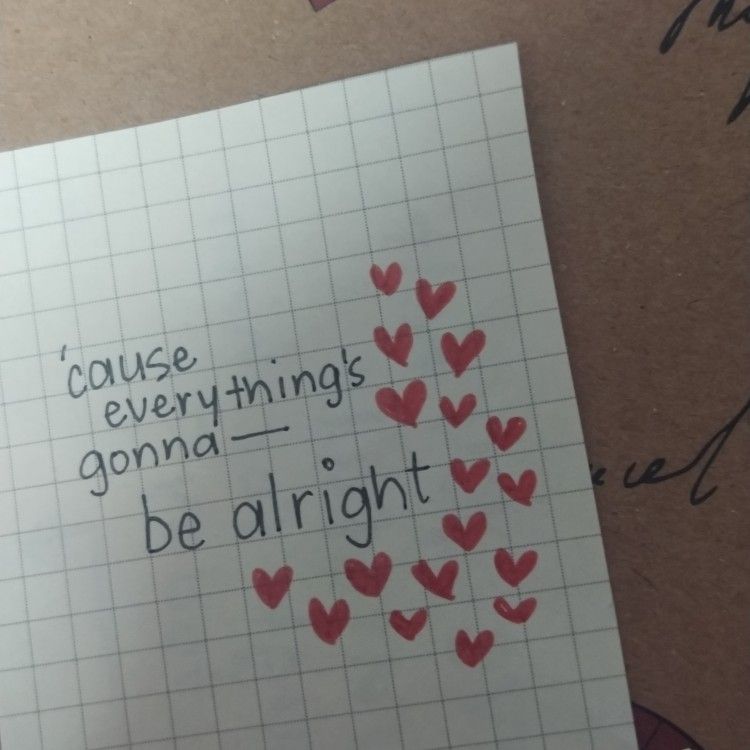 'cause
everything's
gonna —
be alright